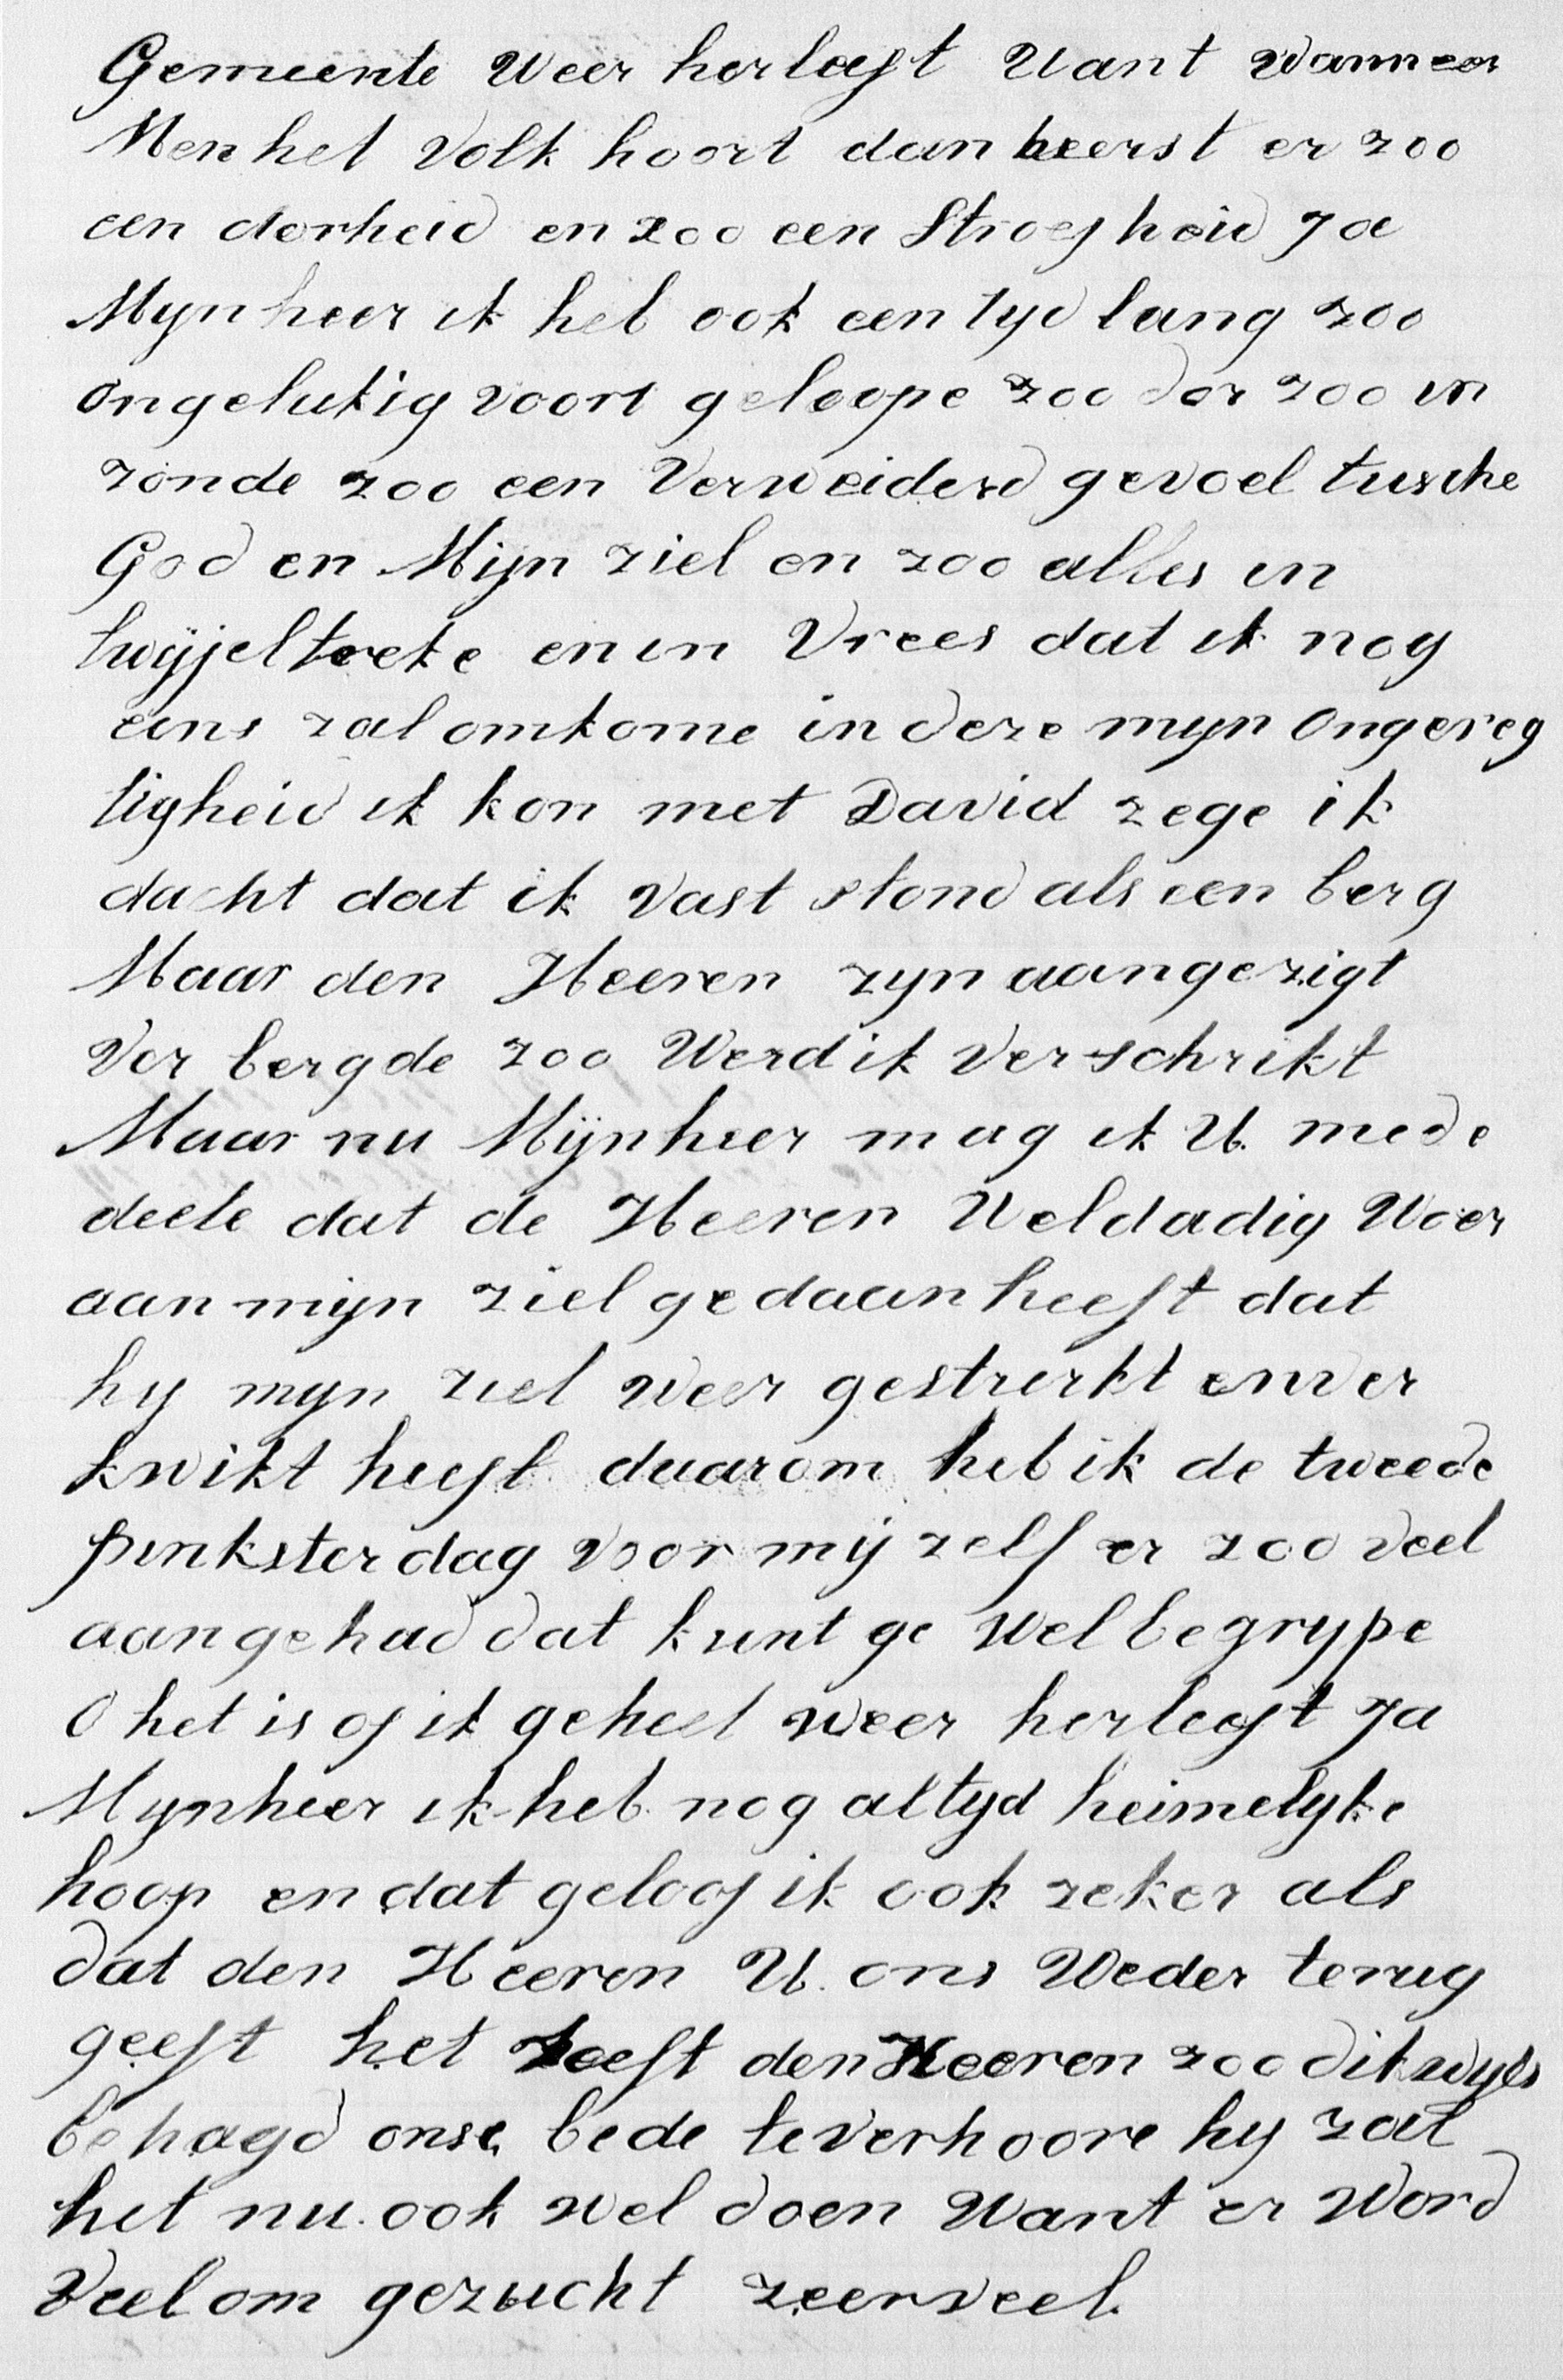 Gemeente weer herleeft Want wanneer
Men het Volk hoort dan heerst er zoo
een dorheid en zoo een Stroefheid Ja
Mynheer ik heb ook een tyd lang zoo
ongelukig voort geloope zoo dor zoo in
zonde zoo een Verweiderd gevoel tussche
God en Mijn ziel en zoo alles in
twyfel treke en in Vrees dat ik nog
eens zal omkome in deze myn ongereg
tigheid ik kon met David zege ik
dacht dat ik Vast stond als een berg
Maar den Heeren zyn aangezigt
Ver bergde zoo Werd ik verschrikt
Maar nu Mijnheer mag ik U. mede
deele dat de Heeren Weldadig Weer
aan mijn ziel gedaan heeft dat
hy myn ziel weer gesterkt en ver
kwikt heeft daarom heb ik de tweede
pinksterdag voor mij zelf er zoo veel
aangehad dat kunt ge wel begrype
O het is of ik geheel weer herleeft Ja
Mynheer ik heb nog altyd heimelyke
hoop en dat geloof ik ook zeker als
dat den Heeren U. ons Weder terug
geeft het heeft den Heeren zoo dikwyls
behagd onse bede te verhoore hy zal
het nu ook wel doen Want er Word
Veel om gezucht zeer veel.